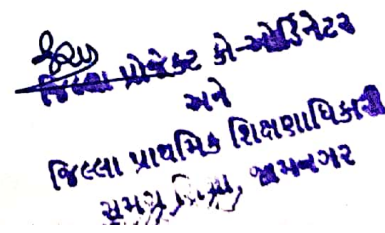 જિલ્લા પ્રોજેકટ કો-ઓર્ડિનેટર
અને
જિલ્લા પ્રાથમિક શિક્ષણાધિકારી
સમગ્ર શિક્ષા, જામનગર